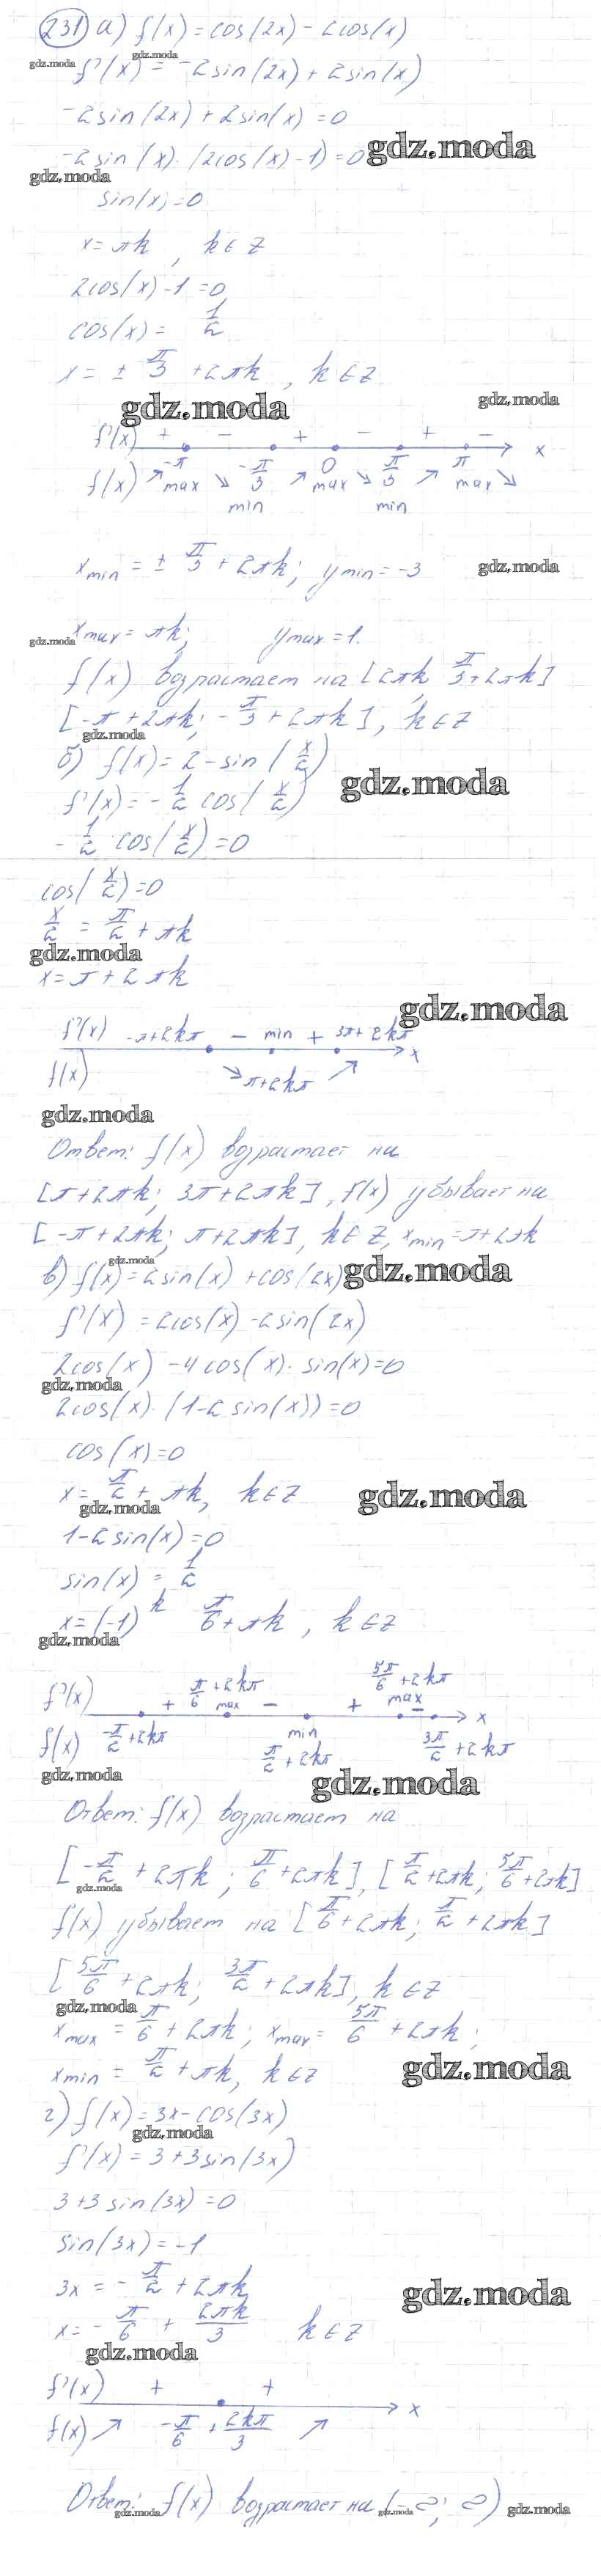 231 а) f(x) = cos(2x) - 2cos(x)
gdz.moda
gdz.moda
f'(x) = -2sin(2x) + 2sin(x)
-2sin(2x) + 2sin(x) = 0
gdz.moda
-2sin(x)·(2cos(x)-1) = 0
gdz.moda
sin(x) = 0
x = πk, k∈Z
2cos(x) - 1 = 0
cos(x) = 1/2
x = ± π/3 + 2πk, k∈Z
gdz.moda
gdz.moda
f'(x) + - + - + - x
-π -π/3 0 π/3 π
f(x) ↗ max ↘ min ↗ max ↘ min ↗ max ↘
x min = ± π/3 + 2πk; y min = -3
gdz.moda
gdz.moda
x max = πk; y max = 1.
f(x) возрастает на [2πk; π/3 + 2πk]
[-π + 2πk; -π/3 + 2πk], k∈Z
gdz.moda
б) f(x) = 2 - sin(x/2)
gdz.moda
f'(x) = -1/2 cos(x/2)
-1/2 cos(x/2) = 0
cos(x/2) = 0
x/2 = π/2 + πk
gdz.moda
x = π + 2πk
gdz.moda
f'(x) -π+2kπ - min + 3π+2kπ x
f(x) ↘ π+2kπ ↗
gdz.moda
Ответ: f(x) возрастает на
[π+2πk; 3π+2πk], f(x) убывает на
[-π+2πk; π+2πk], k∈Z, x min = π+2πk
gdz.moda
в) f(x) = 2sin(x) + cos(2x)
gdz.moda
f'(x) = 2cos(x) - 2sin(2x)
2cos(x) - 4cos(x)·sin(x) = 0
gdz.moda
2cos(x)·(1-2sin(x)) = 0
cos(x) = 0
x = π/2 + πk, k∈Z
gdz.moda
gdz.moda
1-2sin(x) = 0
sin(x) = 1/2
x = (-1)^k π/6 + πk, k∈Z
gdz.moda
π/6 + 2kπ 5π/6 + 2kπ
f'(x) + max - + max - x
f(x) -π/2 + 2kπ min π/2 + 2kπ 3π/2 + 2kπ
gdz.moda
gdz.moda
Ответ: f(x) возрастает на
[-π/2 + 2πk; π/6 + 2πk], [π/2 + 2πk; 5π/6 + 2πk]
gdz.moda
f(x) убывает на [π/6 + 2πk; π/2 + 2πk]
[5π/6 + 2πk; 3π/2 + 2πk], k∈Z
gdz.moda
x max = π/6 + 2πk; x max = 5π/6 + 2πk;
x min = π/2 + πk, k∈Z
gdz.moda
г) f(x) = 3x - cos(3x)
gdz.moda
f'(x) = 3 + 3sin(3x)
3 + 3sin(3x) = 0
sin(3x) = -1
3x = -π/2 + 2πk
gdz.moda
x = -π/6 + 2πk/3 k∈Z
gdz.moda
f'(x) + + x
f(x) ↗ -π/6 + 2kπ/3 ↗
Ответ: f(x) возрастает на (-∞; ∞)
gdz.moda
gdz.moda
gdz.moda